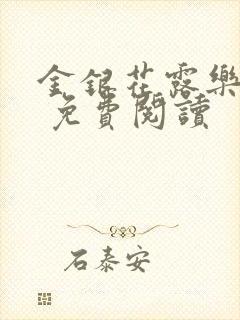 金銀花露樂
免費閱讀
石泰安